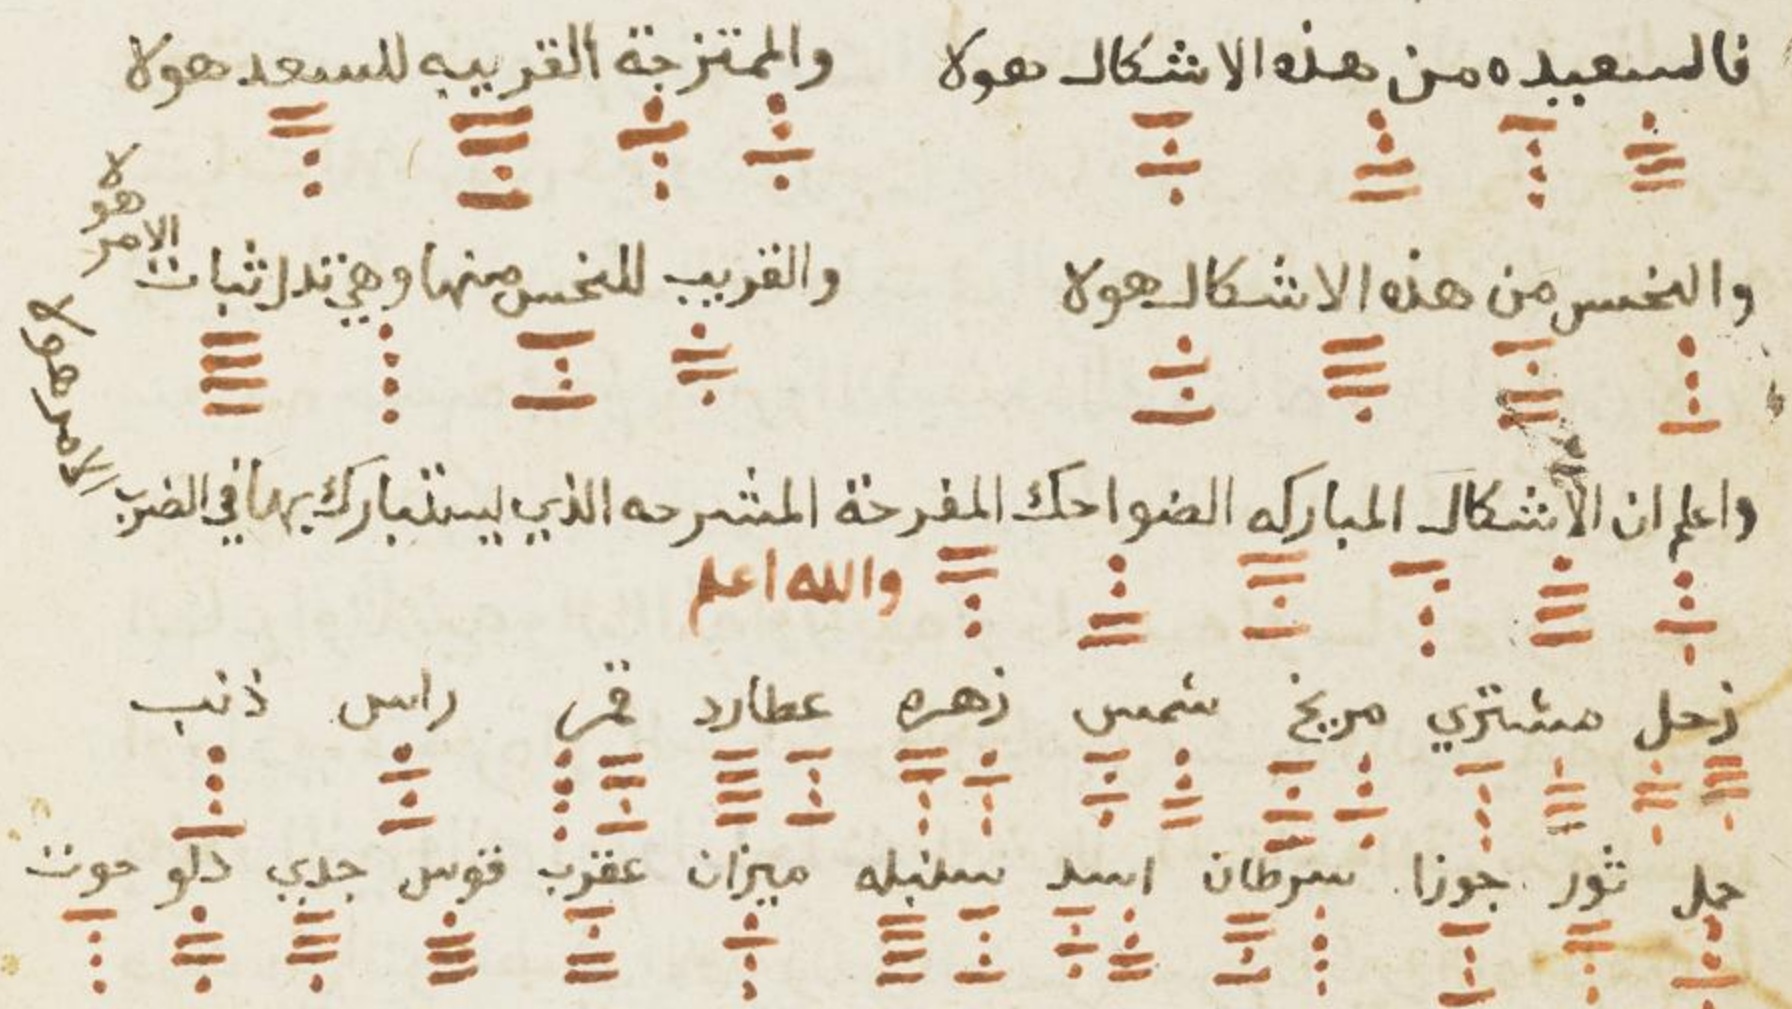 فالسعيده من هذه الاشكال هولا والممتزجة القريبه للسعد هولا
والنحس من هذه الاشكال هولا والقريب للنحس منها وهي تدل ثبات الامر هولا
واعلم ان الاشكال المباركه الضواحك المفرحة المشرحه الذي يستبارك بها في الضرب الامر هولا
والله اعلم
زحل مشتري مريخ شمس زهره عطارد قمر راس ذنب
حمل ثور جوزا سرطان اسد سنبله ميزان عقرب قوس جدي دلو حوت